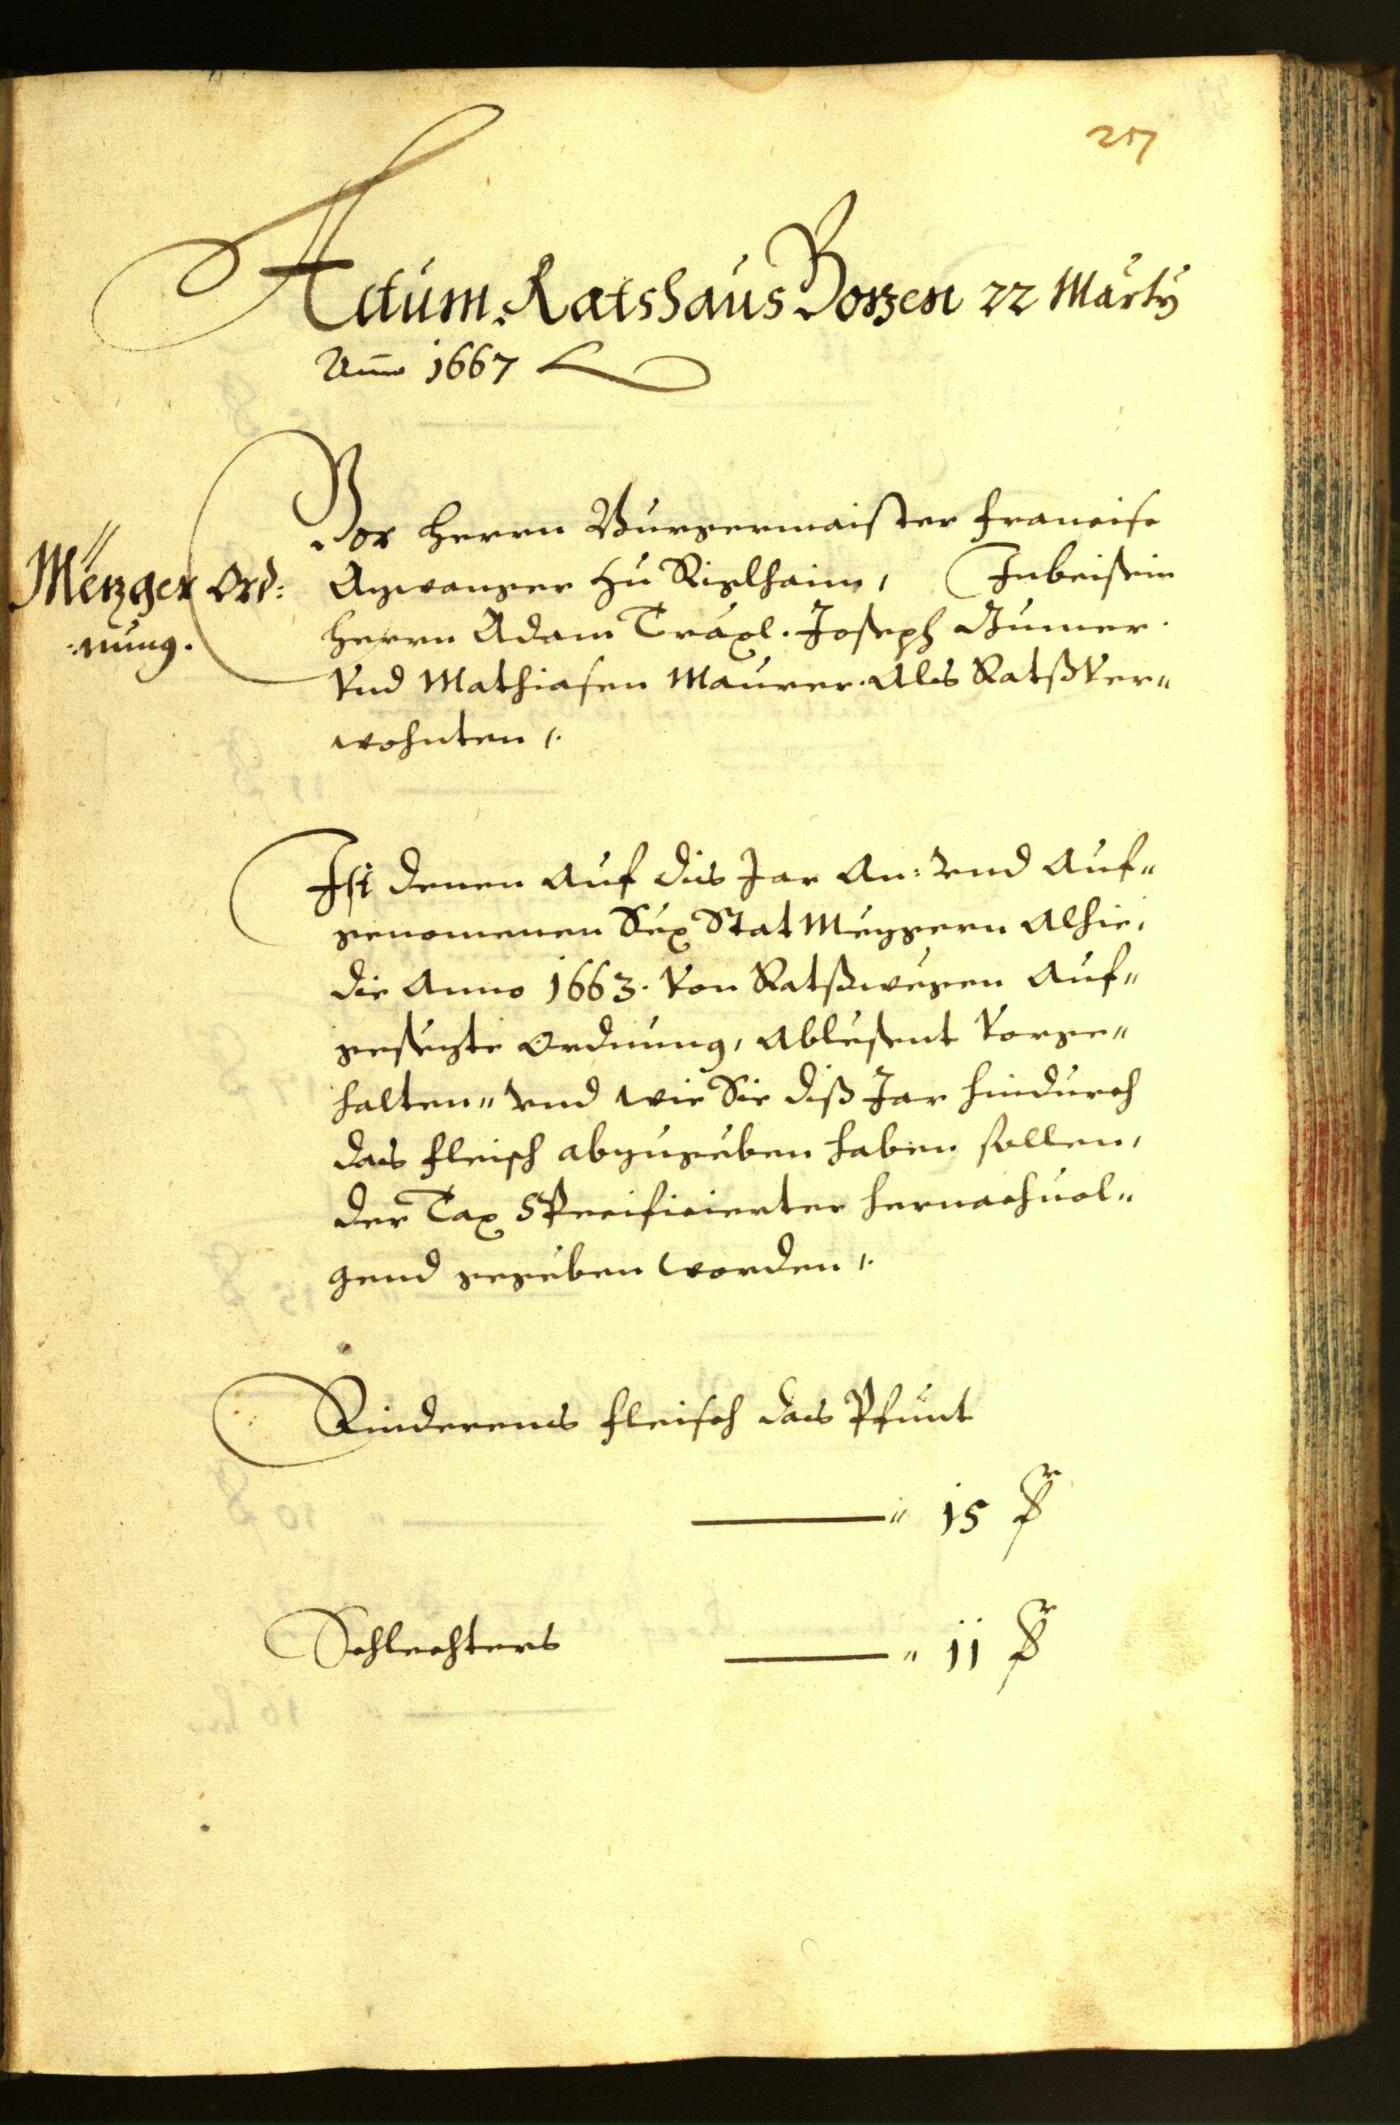 217
Actum Ratshaus Botzen 22 Marty
Anno 1667
Vor Herrn Burgermaister Francisc
Azwanger zu Rizlhaim, Inbeisein
Herrn Adam Träxl. Joseph Gumer.
Vnd Mathiasen Maurer. Als Ratßver„
wohnten /.
Metzger Ord:
:nung.
Ist denen auf dis Jar An: vnd Auf„
genomenen Sex Stat Mezgern Alhie,
die Anno 1663. von Ratßwegen Auf„
gesezte Ordnung, Ablesent vorge„
halten„ vnd wie Sie diß Jar hindurch
das Fleisch abzugeben haben sollen,
der Tax Specificierter hernachuol„
gend gegeben worden /.
Rinderens Fleisch das Pfunt
„ 15 fr
Schlechters „ 11 fr